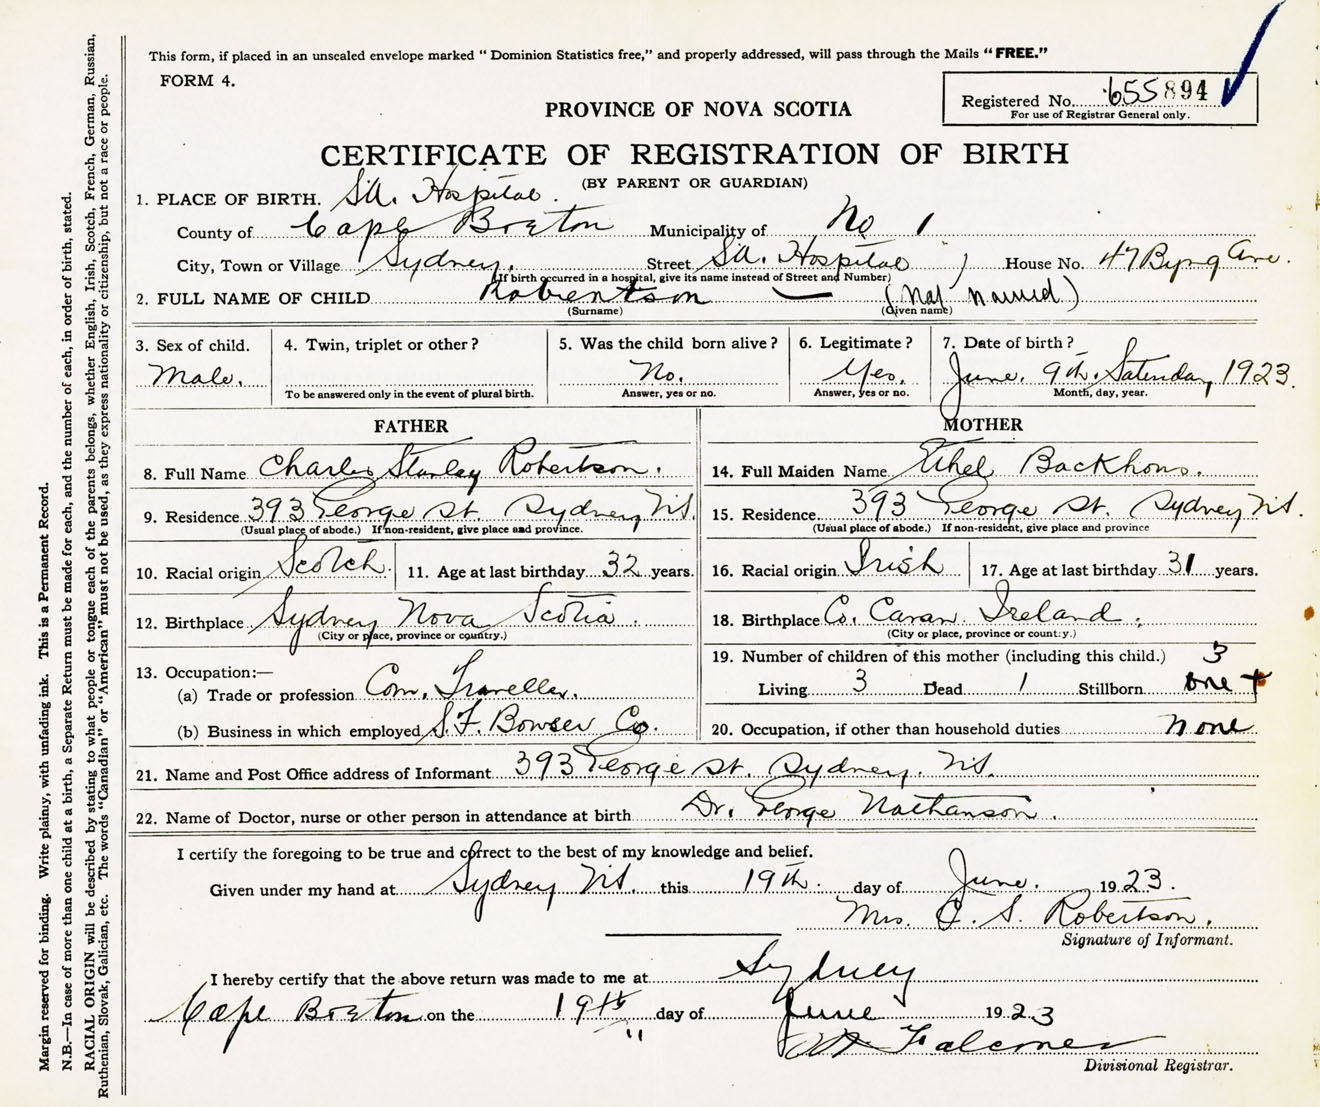 This form, if placed in an unsealed envelope marked " Dominion Statistics free," and properly addressed, will pass through the Mails " FREE."
FORM 4.
Registered No. 655894
For use of Registrar General only.
PROVINCE OF NOVA SCOTIA
CERTIFICATE OF REGISTRATION OF BIRTH
(BY PARENT OR GUARDIAN)
1. PLACE OF BIRTH. Hospital.
County of Cape Breton Municipality of No 1
City, Town or Village Sydney. Street Hospital House No. 47 Byng Ave.
(If birth occurred in a hospital, give its name instead of Street and Number)
2. FULL NAME OF CHILD Robertson — (Not Named)
(Surname) (Given name)
3. Sex of child. 4. Twin, triplet or other ? 5. Was the child born alive ? 6. Legitimate ? 7. Date of birth ?
Male. No. Yes. June. 9th. Saturday, 1923.
To be answered only in the event of plural birth. Answer, yes or no. Answer, yes or no. Month, day, year.
FATHER
8. Full Name Charles Stanley Robertson.
9. Residence 393 George St. Sydney N.S.
(Usual place of abode.) If non-resident, give place and province.
10. Racial origin Scotch. 11. Age at last birthday 32 years.
12. Birthplace Sydney Nova Scotia.
(City or place, province or country.)
13. Occupation:—
(a) Trade or profession Com. Traveller.
(b) Business in which employed S.F. Bowser Co.
MOTHER
14. Full Maiden Name Ethel Backhous.
15. Residence 393 George St. Sydney N.S.
(Usual place of abode.) If non-resident, give place and province
16. Racial origin Irish 17. Age at last birthday 31 years.
18. Birthplace Co. Cavan. Ireland.
(City or place, province or country.)
19. Number of children of this mother (including this child.) 3
Living 3 Dead 1 Stillborn one +
20. Occupation, if other than household duties none
21. Name and Post Office address of Informant 393 George St. Sydney. N.S.
22. Name of Doctor, nurse or other person in attendance at birth Dr. George Nathanson.
I certify the foregoing to be true and correct to the best of my knowledge and belief.
Given under my hand at Sydney N.S. this 19th. day of June. 1923.
Mrs. C. S. Robertson.
Signature of Informant.
I hereby certify that the above return was made to me at Sydney
Cape Breton on the 19th day of June 1923
Falconer
Divisional Registrar.
Margin reserved for binding. Write plainly, with unfading ink. This is a Permanent Record.
N.B.—In case of more than one child at a birth, a Separate Return must be made for each, and the number of each, in order of birth, stated.
RACIAL ORIGIN will be described by stating to what people or tongue each of the parents belongs, whether English, Irish, Scotch, French, German, Russian,
Ruthenian, Slovak, Galician, etc. The words "Canadian" or "American" must not be used, as they express nationality or citizenship, but not a race or people.